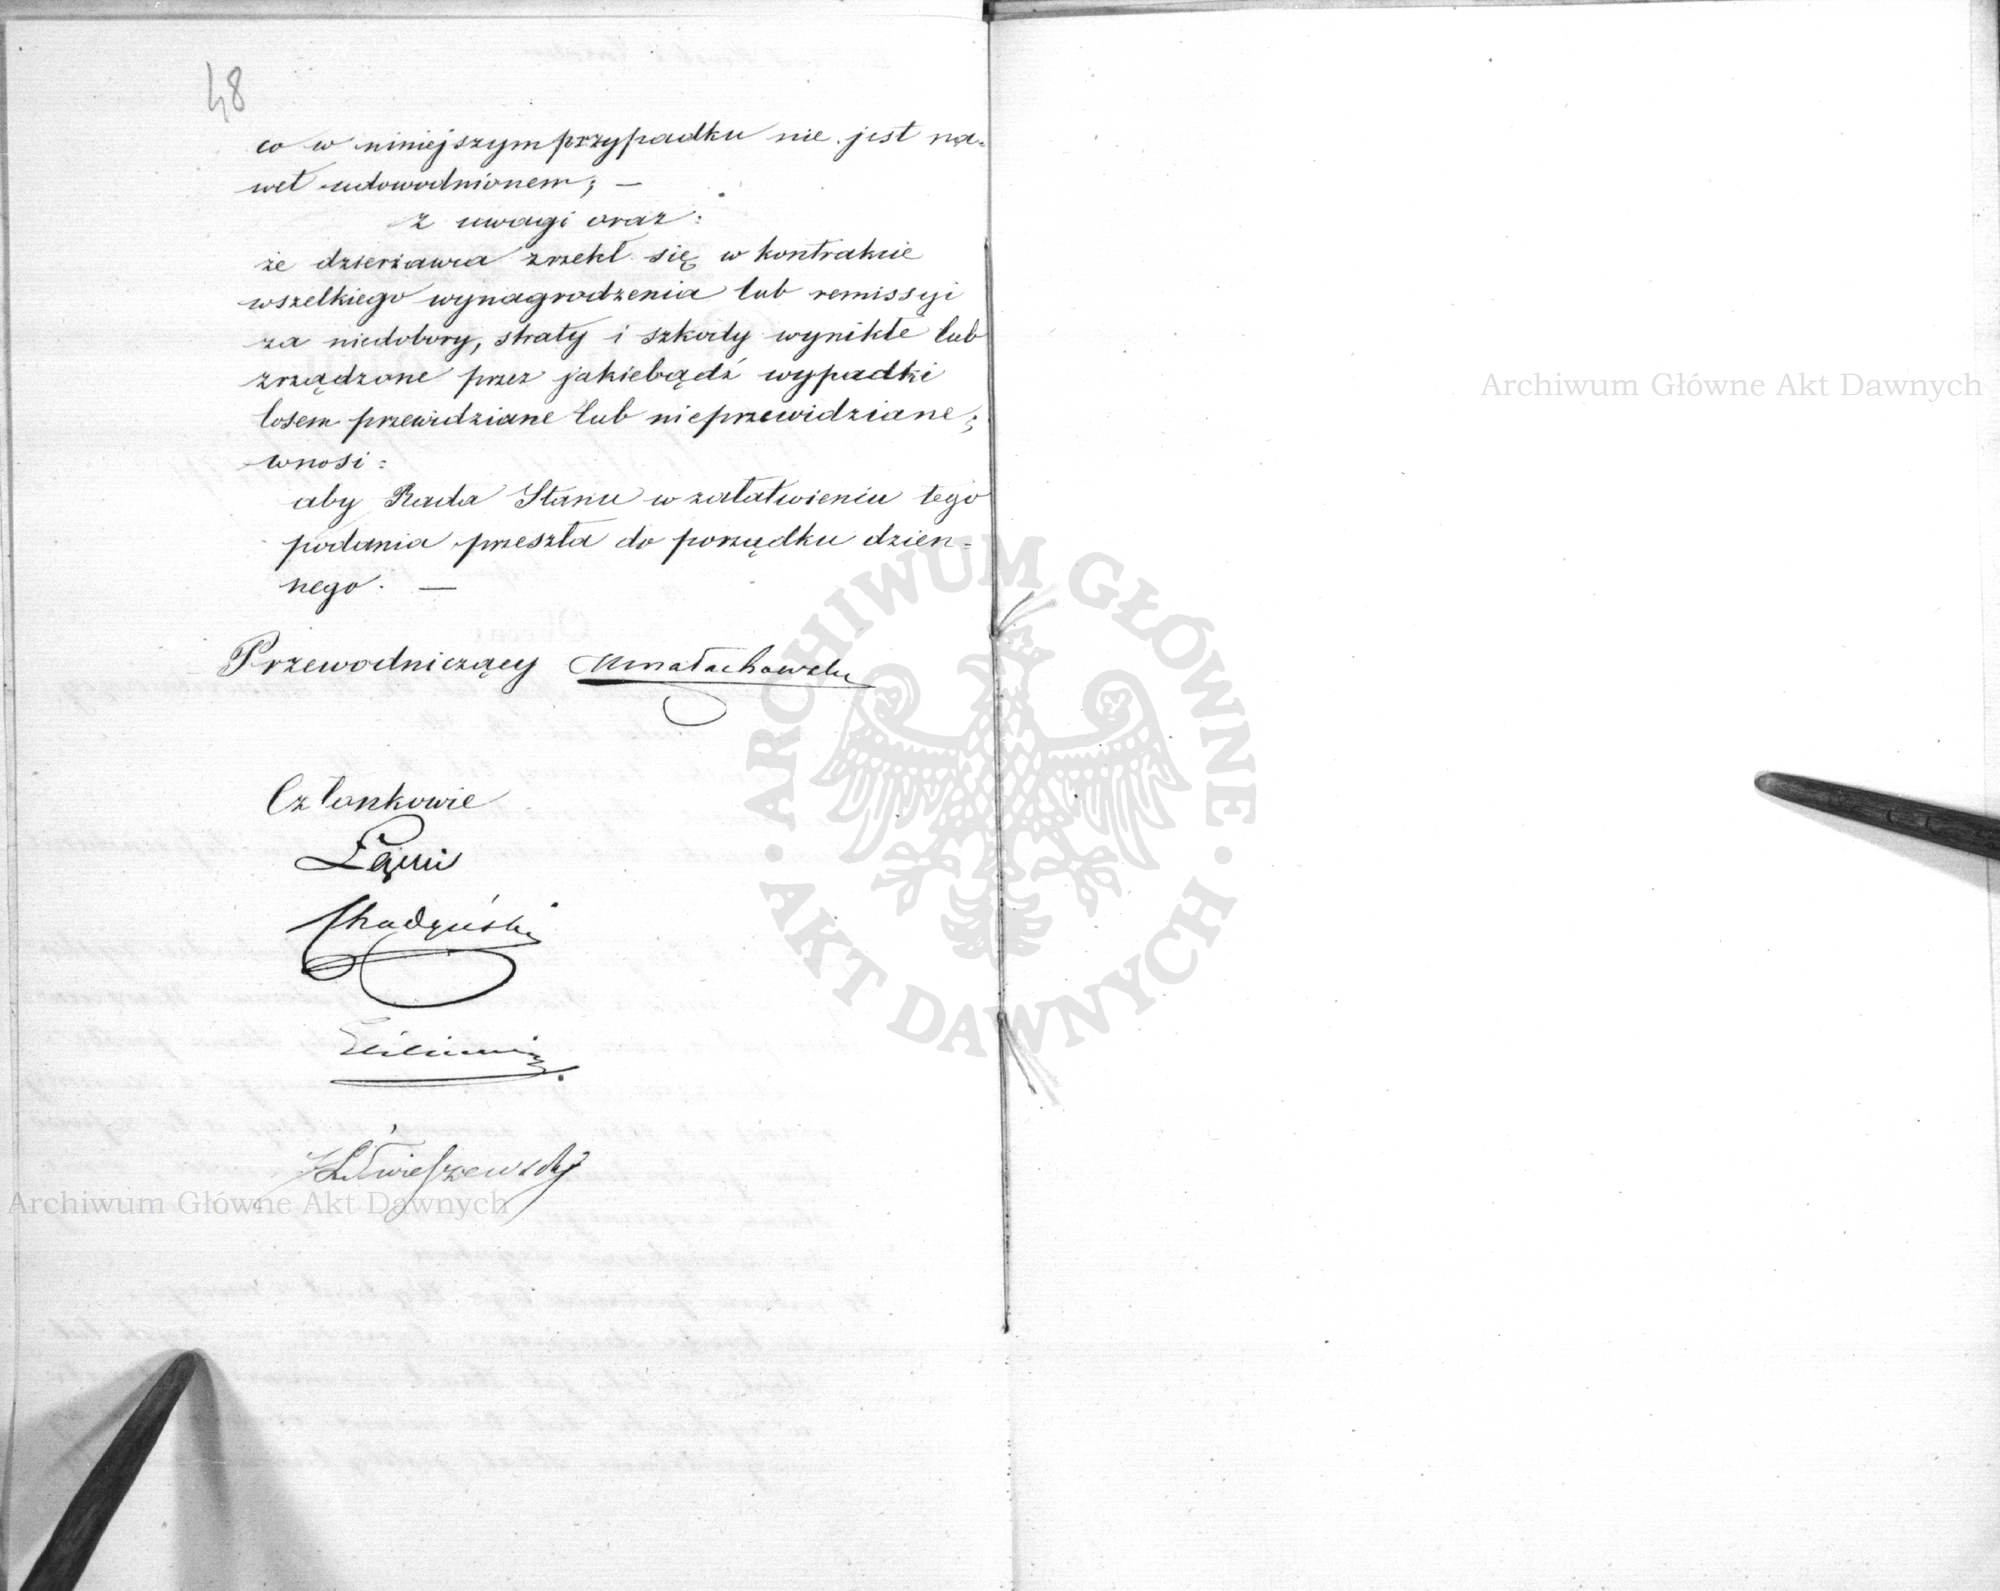 48
co w niniejszym przypadku nie jest na=
wet udowodnionem; —
z uwagi oraz:
że dzierżawca zrzekł się w kontrakcie
wszelkiego wynagrodzenia lub remissyi
za niedobory, straty i szkody wynikłe lub
zrządzone przez jakiebądź wypadki
losem przewidziane lub nieprzewidziane;
wnosi:
aby Rada Stanu w załatwieniu tego
podania przeszła do porządku dzien=
nego. —
Przewodniczący Małachowski
Członkowie
Łęski
Chądzyński
Archiwum Główne Akt Dawnych
Archiwum Główne Akt Dawnych
ARCHIWUM GŁÓWNE
AKT DAWNYCH